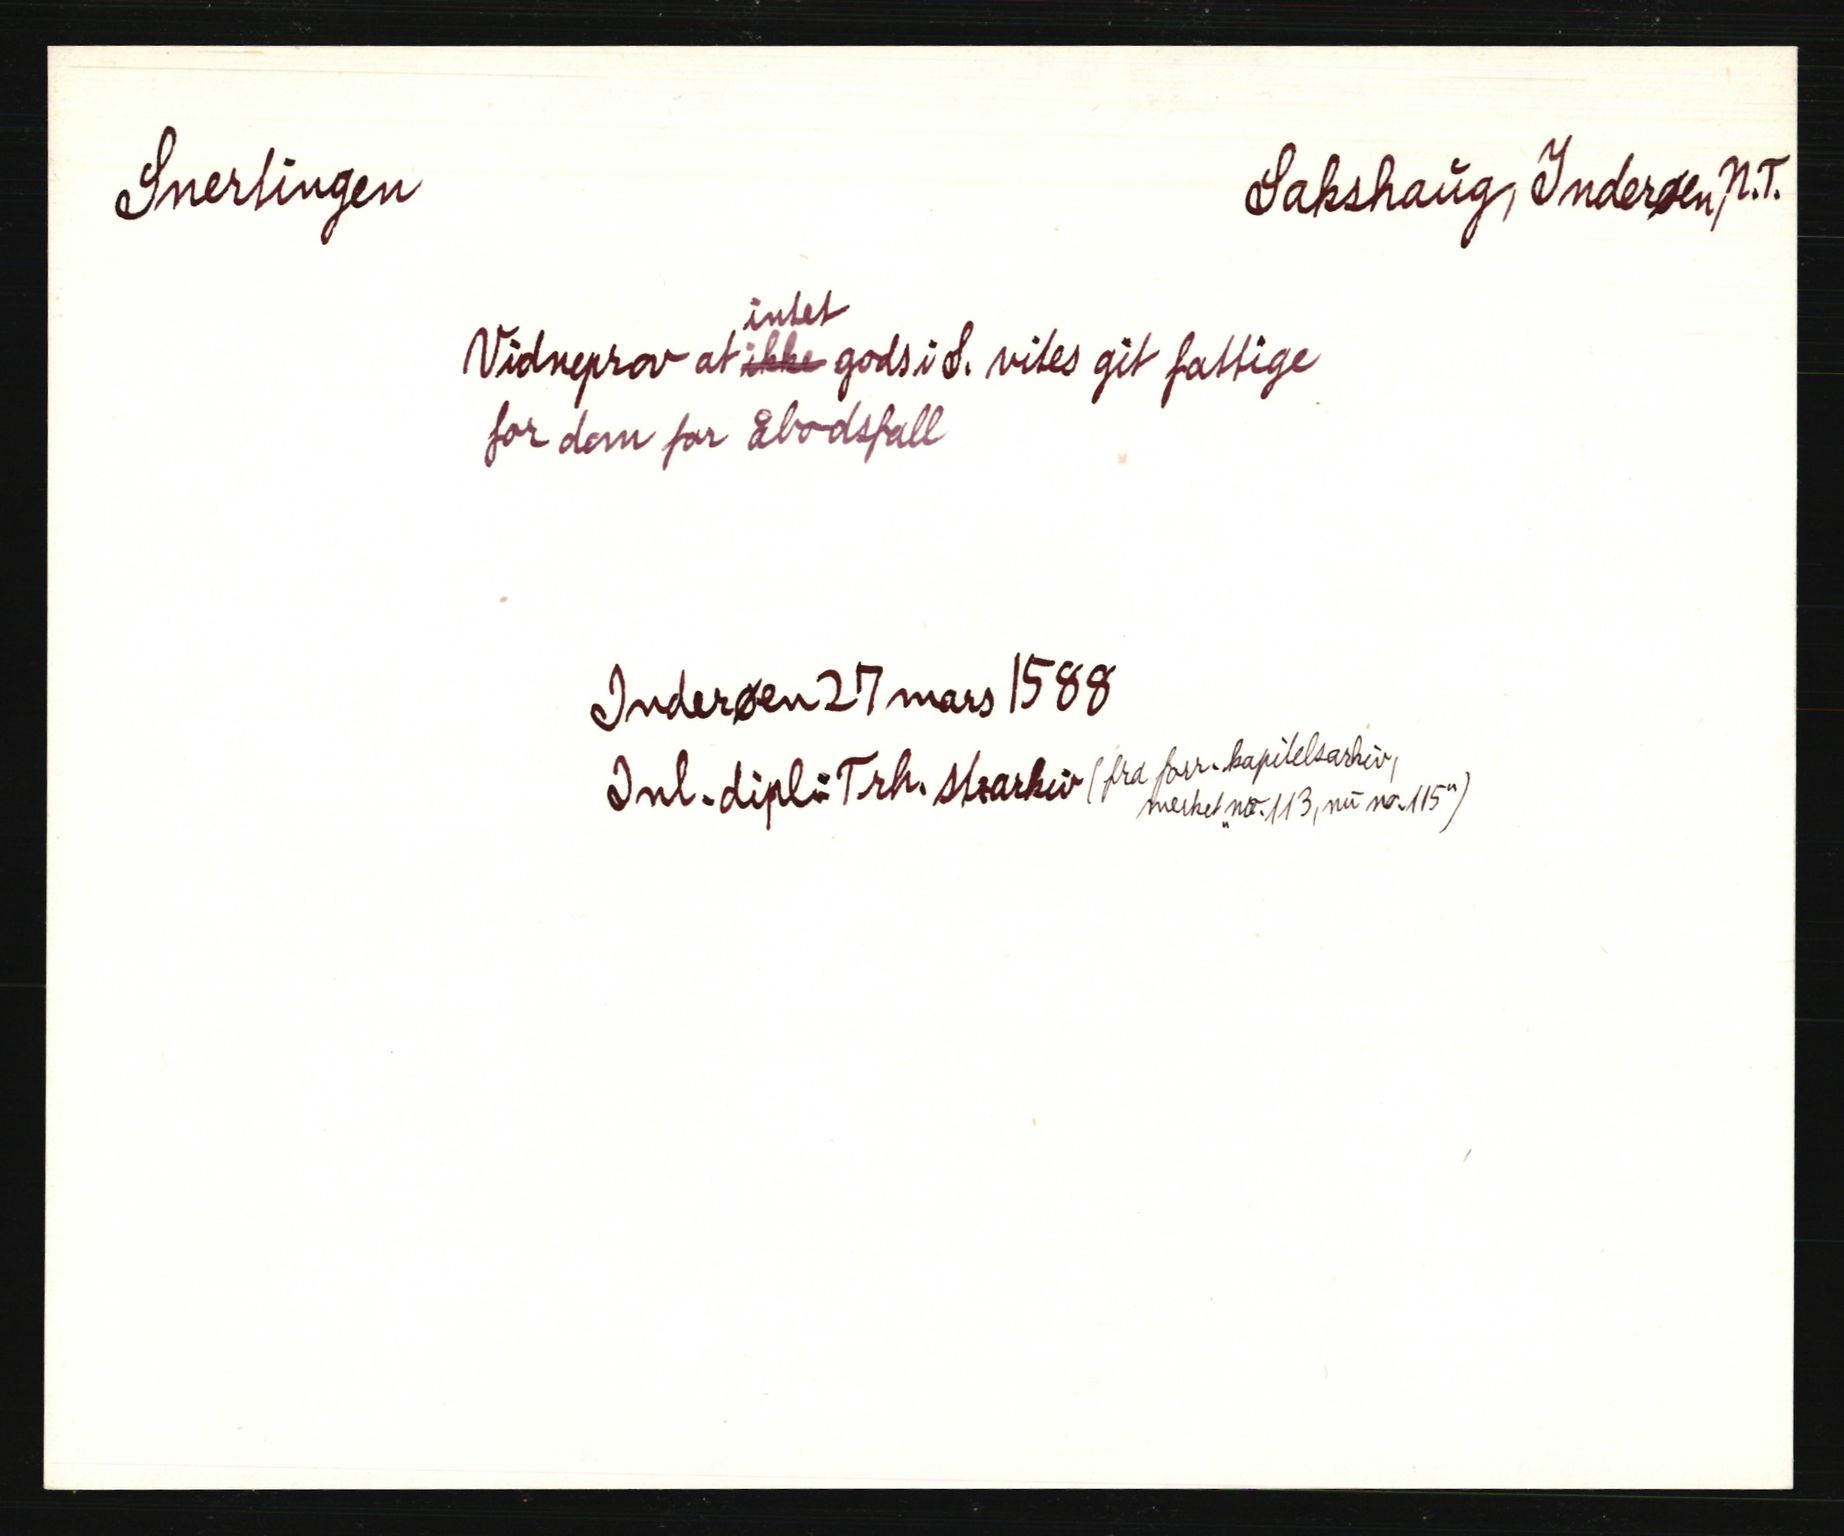 Snertingen
Sakshaŭg, Inderøen, N.T.
intet
Vidneprov at ikke gods i S. vites git fattige
for dem for Åbodsfall
Inderøen 27 mars 1588
Inl. dipl. i Trh. st.arkiv (fra forr. kapitelsarkiv,
merket „no. 113, nŭ no. 115")